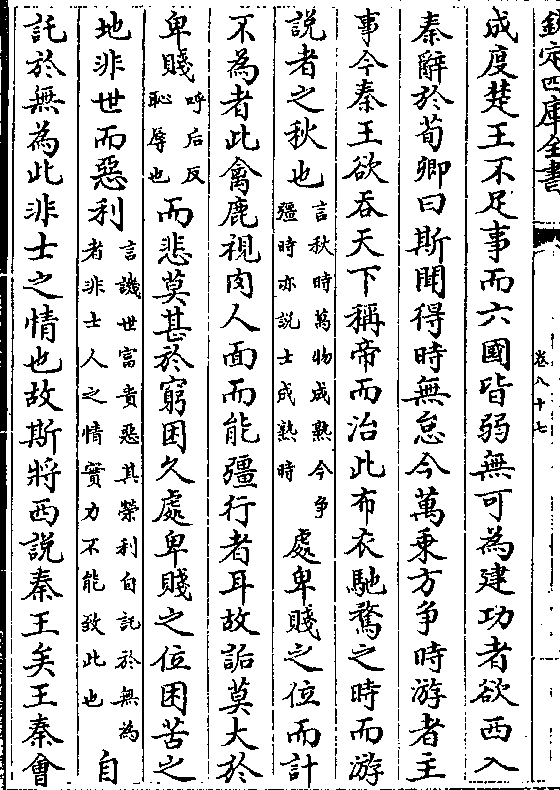 欽定四庫全書
卷八十七
成度楚王不足事而六國皆弱無可為建功者欲西入
秦辭於荀卿曰斯聞得時無怠今萬乘方争時游者主
事今秦王欲吞天下稱帝而治此布衣馳騖之時而游
說者之秋也
言秋時萬物成熟今争
彊時亦說士成熟時
處卑賤之位而計
不為者此禽鹿視肉人面而能彊行者耳故詬莫大於
卑賤
呼后反
恥辱也
而悲莫甚於窮困久處卑賤之位困苦之
地非世而惡利
言譏世富貴惡其榮利自託於無為
者非士人之情實力不能致此也
自
託於無為此非士之情也故斯將西說秦王矣王秦會